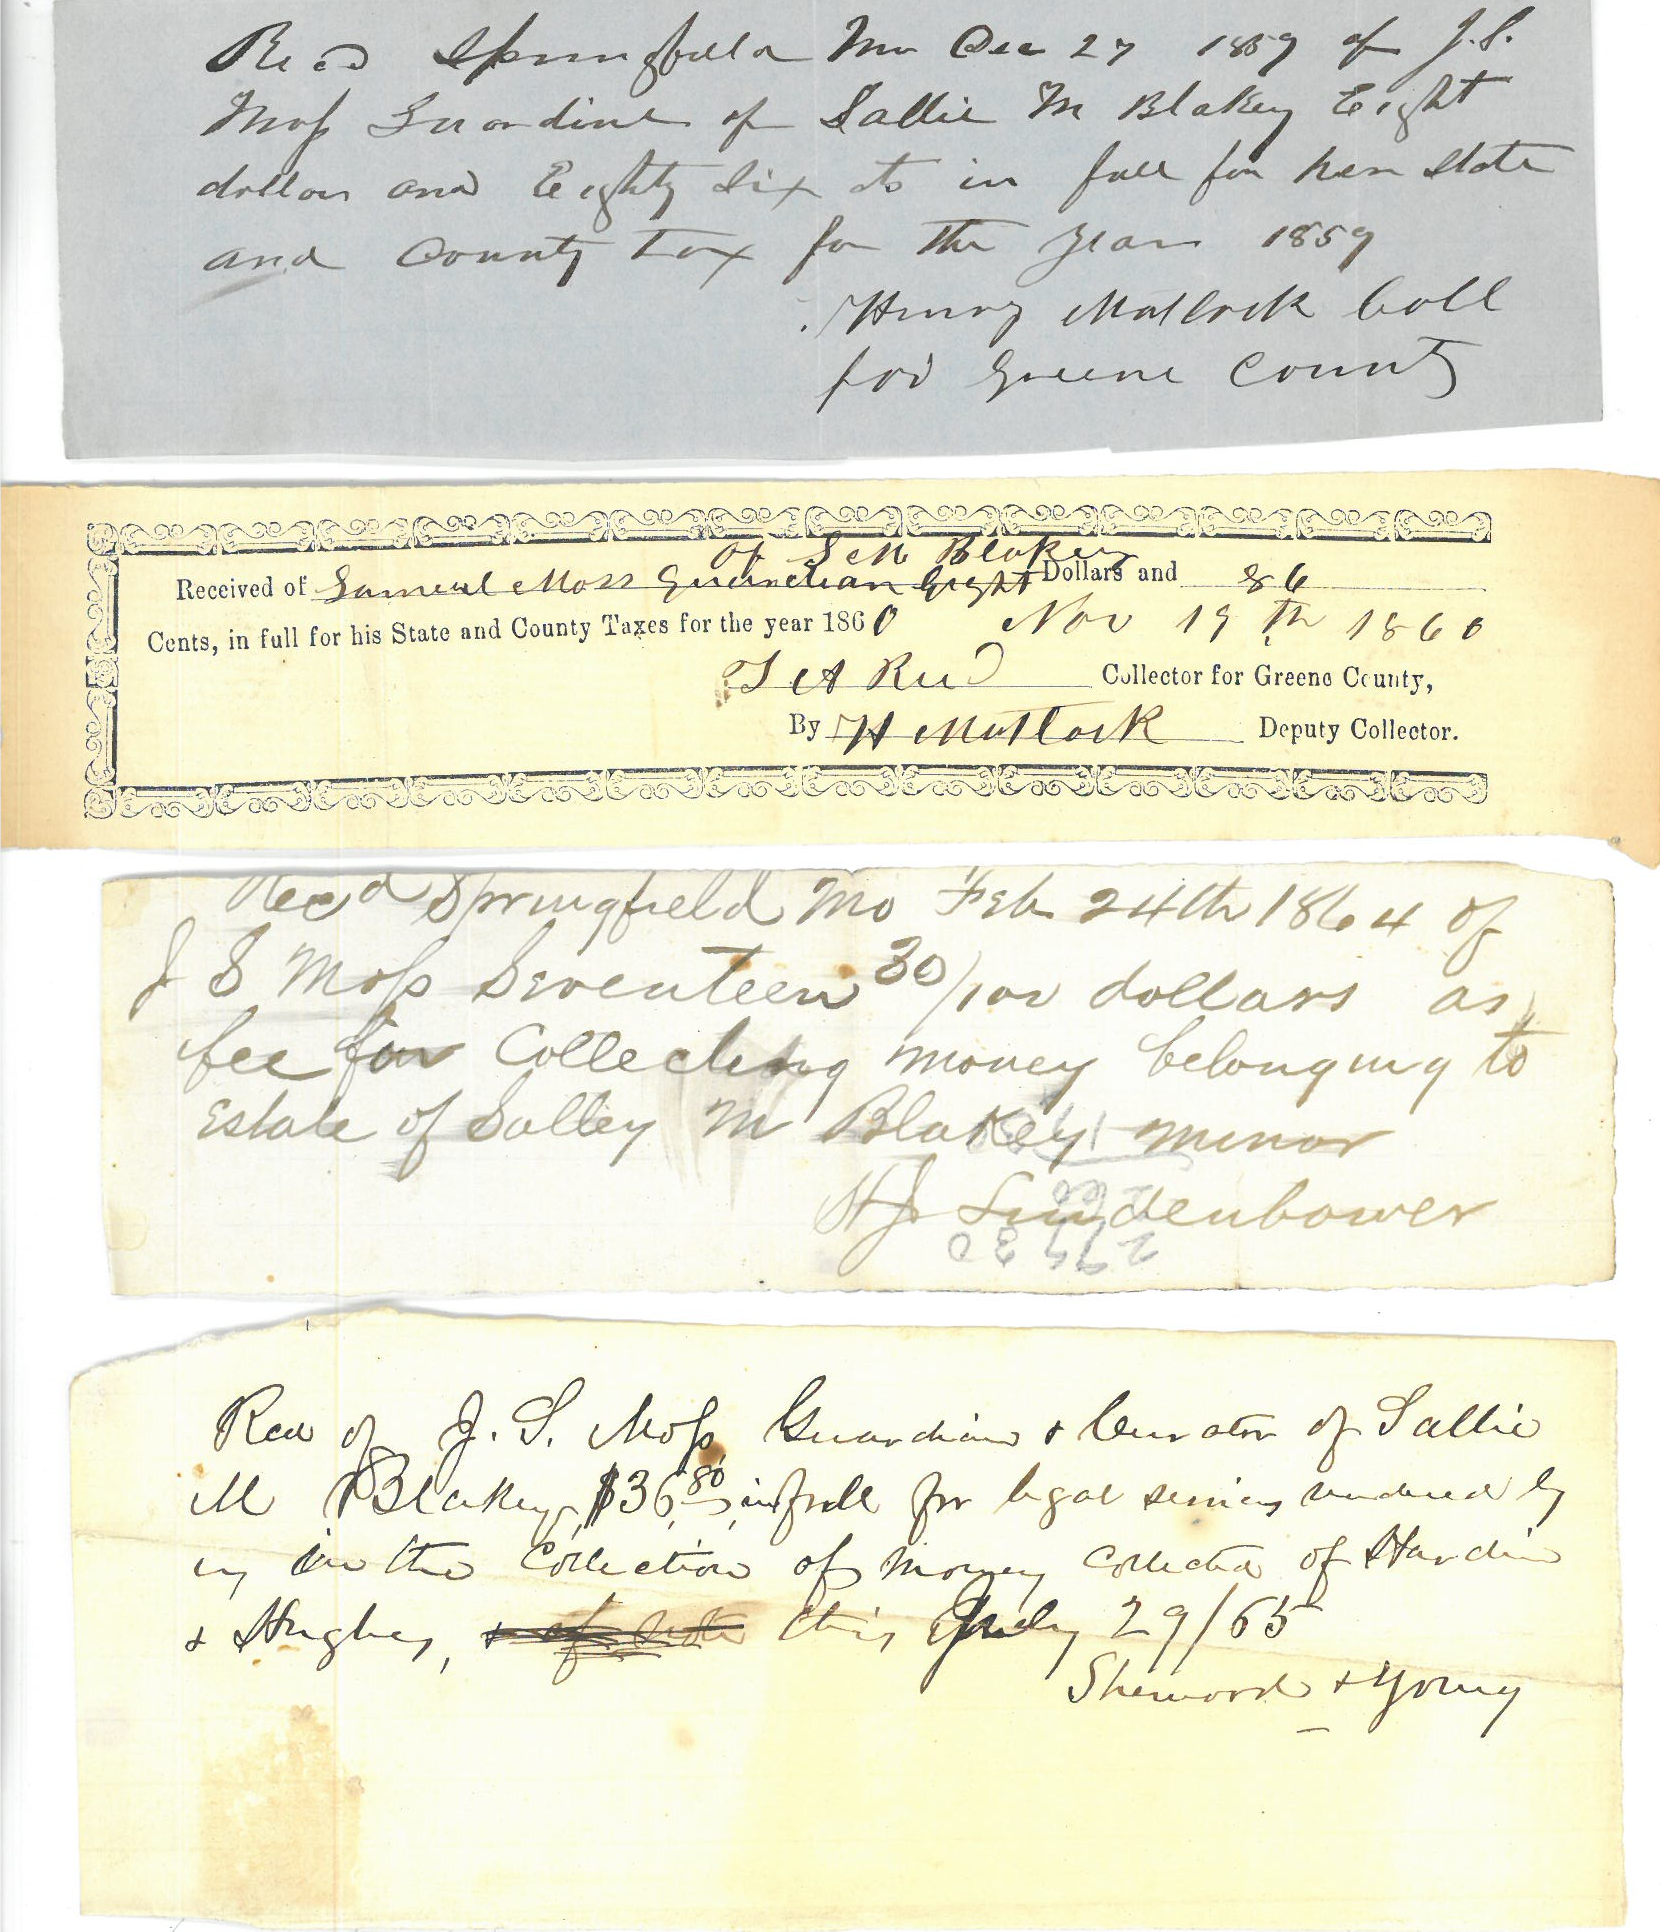 Recd Springfield Mo Dec 27 1859 of J. S.
Moss Guardine of Sallie M Blakey Eight
dollars and Eighty Six cts in full for her State
and County tax for the year 1859
Henry Matlock Coll
for Greene County
of S M Blakey
Received of Samuel Moss Guardian Eight Dollars and 86
Cents, in full for his State and County Taxes for the year 1860 Nov 19th 1860
T A Reed Collector for Greene County,
By H Matlock Deputy Collector.
Recd Springfield Mo Feb 24th 1864 of
J S Moss Seventeen 30/100 dollars as
fee for Collecting money belonging to
Estate of Salley M Blakey minor
H J Lindenbower
Recd of J. S. Moss Guardian & Curator of Sallie
M Blakey, $36.80, in full for legal services rendered by
us in the collection of money collected of Hardin
& Hughes, this July 29/65
Sherwood & Young